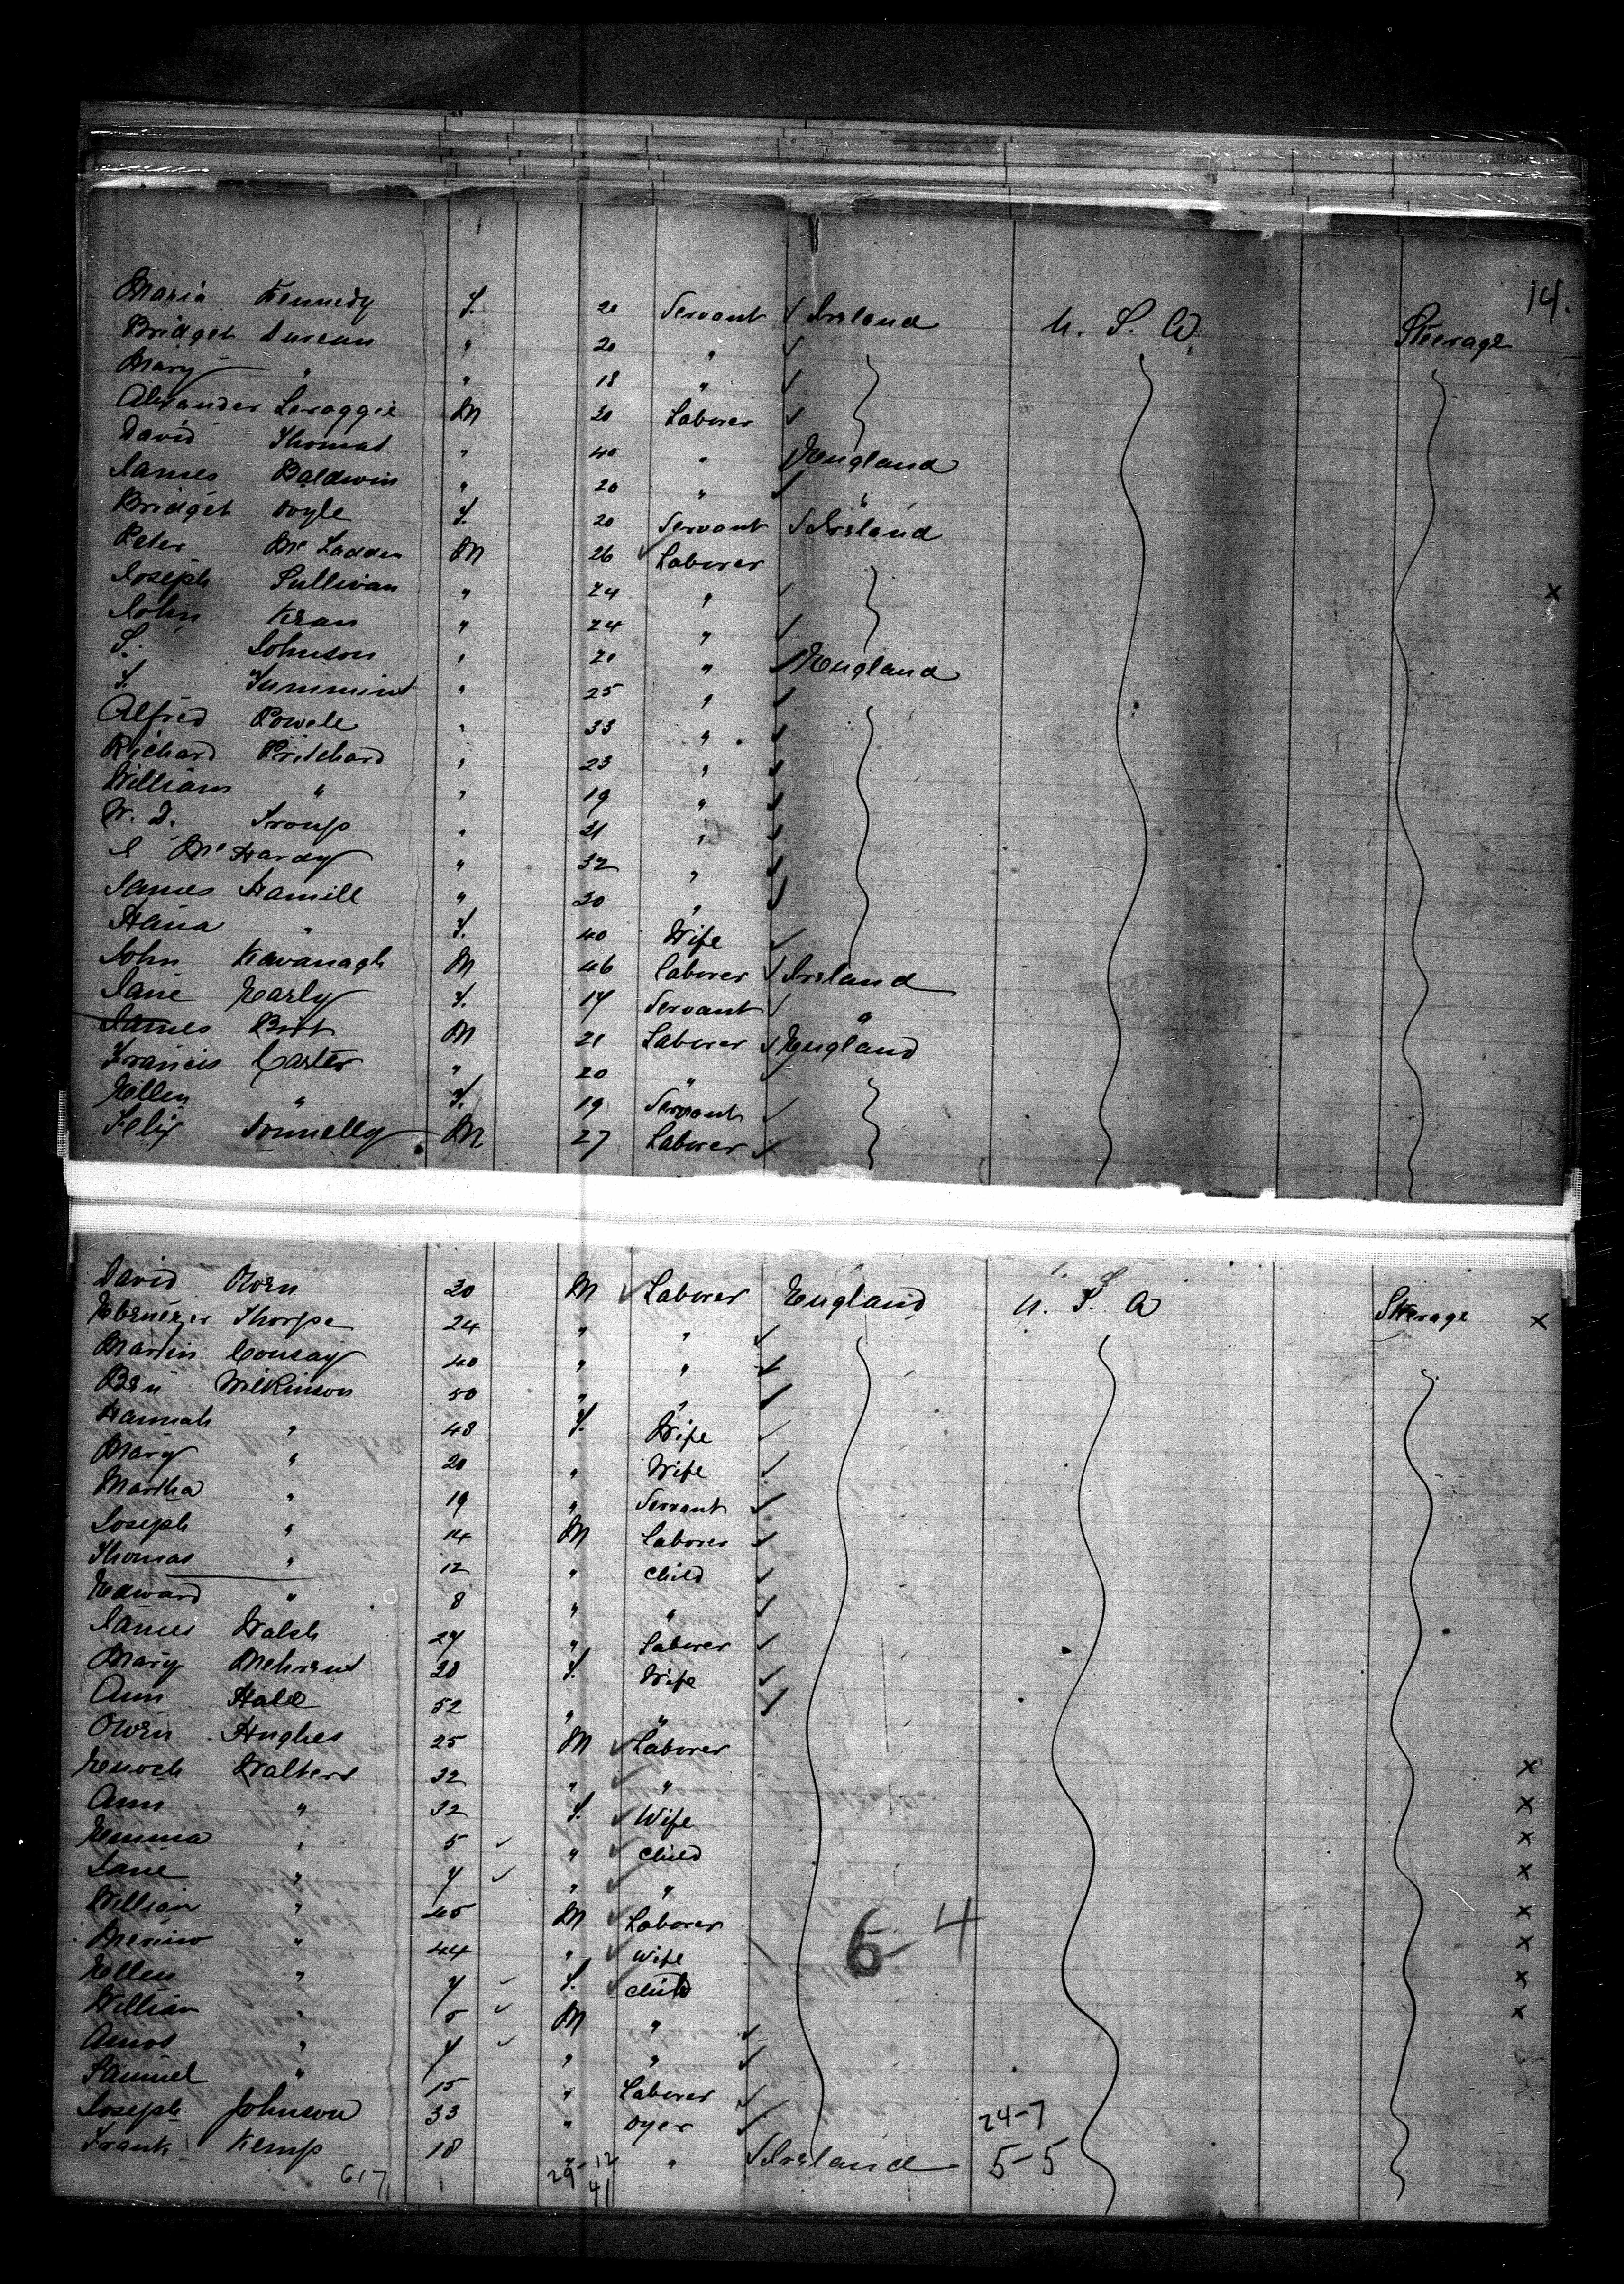 14.
Maria Kennedy F. 20 Servant ✓ Ireland U. S. A Steerage
Bridget " 20 " ✓
Mary " " 18 " ✓
Alexander M 20 Laborer ✓
David Thomas " 40 " ✓ England
James Baldwin " 20 " ✓ "
Bridget Doyle F. 20 Servant ✓ Ireland
Peter Mc Fadden M 26 ✓ Laborer x
Joseph Sullivan " 24 " ✓
John " 24 " ✓
S. Johnson " 20 " ✓ England
" 25 " ✓
Alfred Powell " 33 " ✓
Richard Pritchard " 23 " ✓
William " " 19 " ✓
W. D. Troup " 21 " ✓
Mc Hardy " 32 " ✓
James Hamill " 30 " ✓
Hana " F. 40 Wife ✓
John Kavanagh M 46 Laborer ✓ Ireland
Jane Early F. 17 Servant ✓ "
James M 21 Laborer ✓ England
Francis Carter " 20 " ✓
Ellen " F. 19 Servant ✓
Felix Donnelly M 27 Laborer ✓
David Owen 30 M ✓ Laborer England U. S. A Steerage x
Ebenezer Thorpe 24 " " ✓
Martin 40 " " ✓
Ben Wilkinson 50 " " ✓
Hannah " 48 F. Wife ✓
Mary " 20 " Wife ✓
Martha " 19 " Servant ✓
Joseph " 14 M Laborer ✓
Thomas " 12 " Child ✓
Edward " 8 " " ✓
James Walsh 24 " Laborer ✓
Mary 28 F. Wife ✓
Ann Hall 52 " " ✓
Owen Hughes 25 M ✓ Laborer x
Enoch Walters 32 " ✓ " x
Ann " 32 F. ✓ Wife x
Emma " 5 ✓ " ✓ Child x
Jane " 4 ✓ " ✓ " x
William " 45 M ✓ Laborer 6-4 x
" 44 " ✓ Wife x
Ellen " 7 ✓ F. ✓ Child x
William " 5 ✓ M " ✓
Amos " 4 ✓ " " ✓
Samuel " 15 " Laborer ✓
Joseph Johnson 33 " Dyer ✓ 24-7
Frank Kemp 18 " " ✓ Ireland 5-5
617 29-12
41